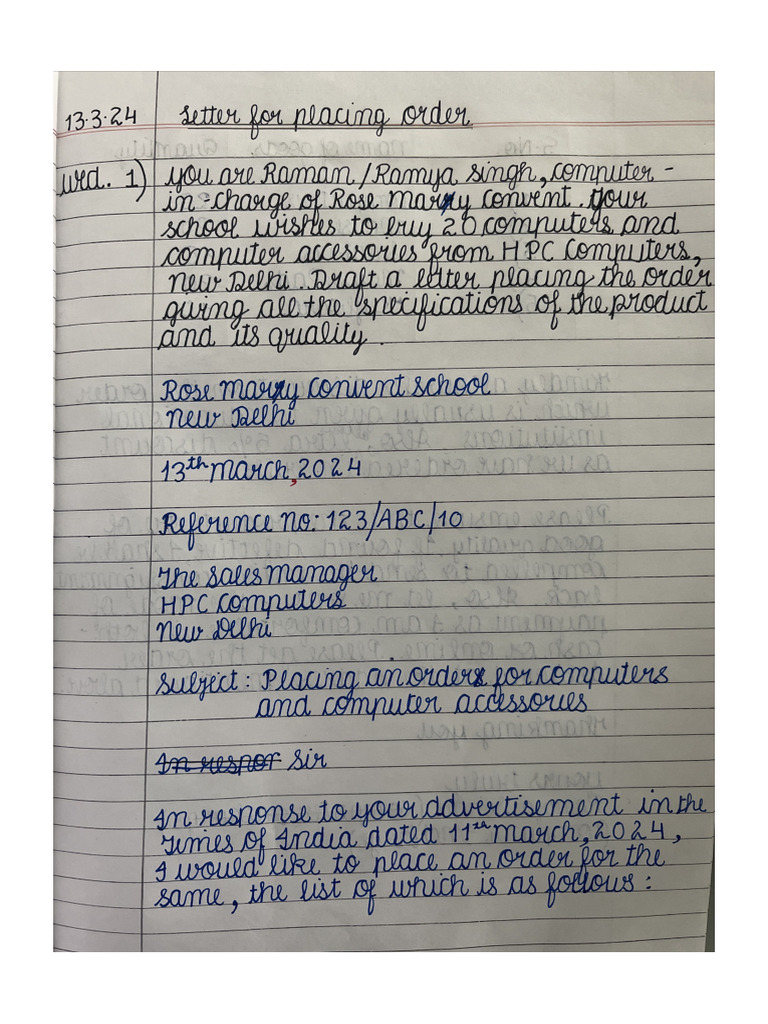 13.3.24 Letter for placing order
Wrd. 1) You are Raman/Ramya Singh, computer-
in-charge of Rose Marry Convent. Your
school wishes to buy 20 computers and
computer accessories from HPC Computers,
New Delhi. Draft a letter placing the order
giving all the specifications of the product
and its quality.
Rose Marry Convent School
New Delhi
13th March, 2024
Reference No: 123/ABC/10
The Sales Manager
HPC Computers
New Delhi
Subject: Placing an order for computers
and computer accessories
In respor Sir
In response to your advertisement in the
Times of India dated 11th March, 2024,
I would like to place an order for the
same, the list of which is as follows: